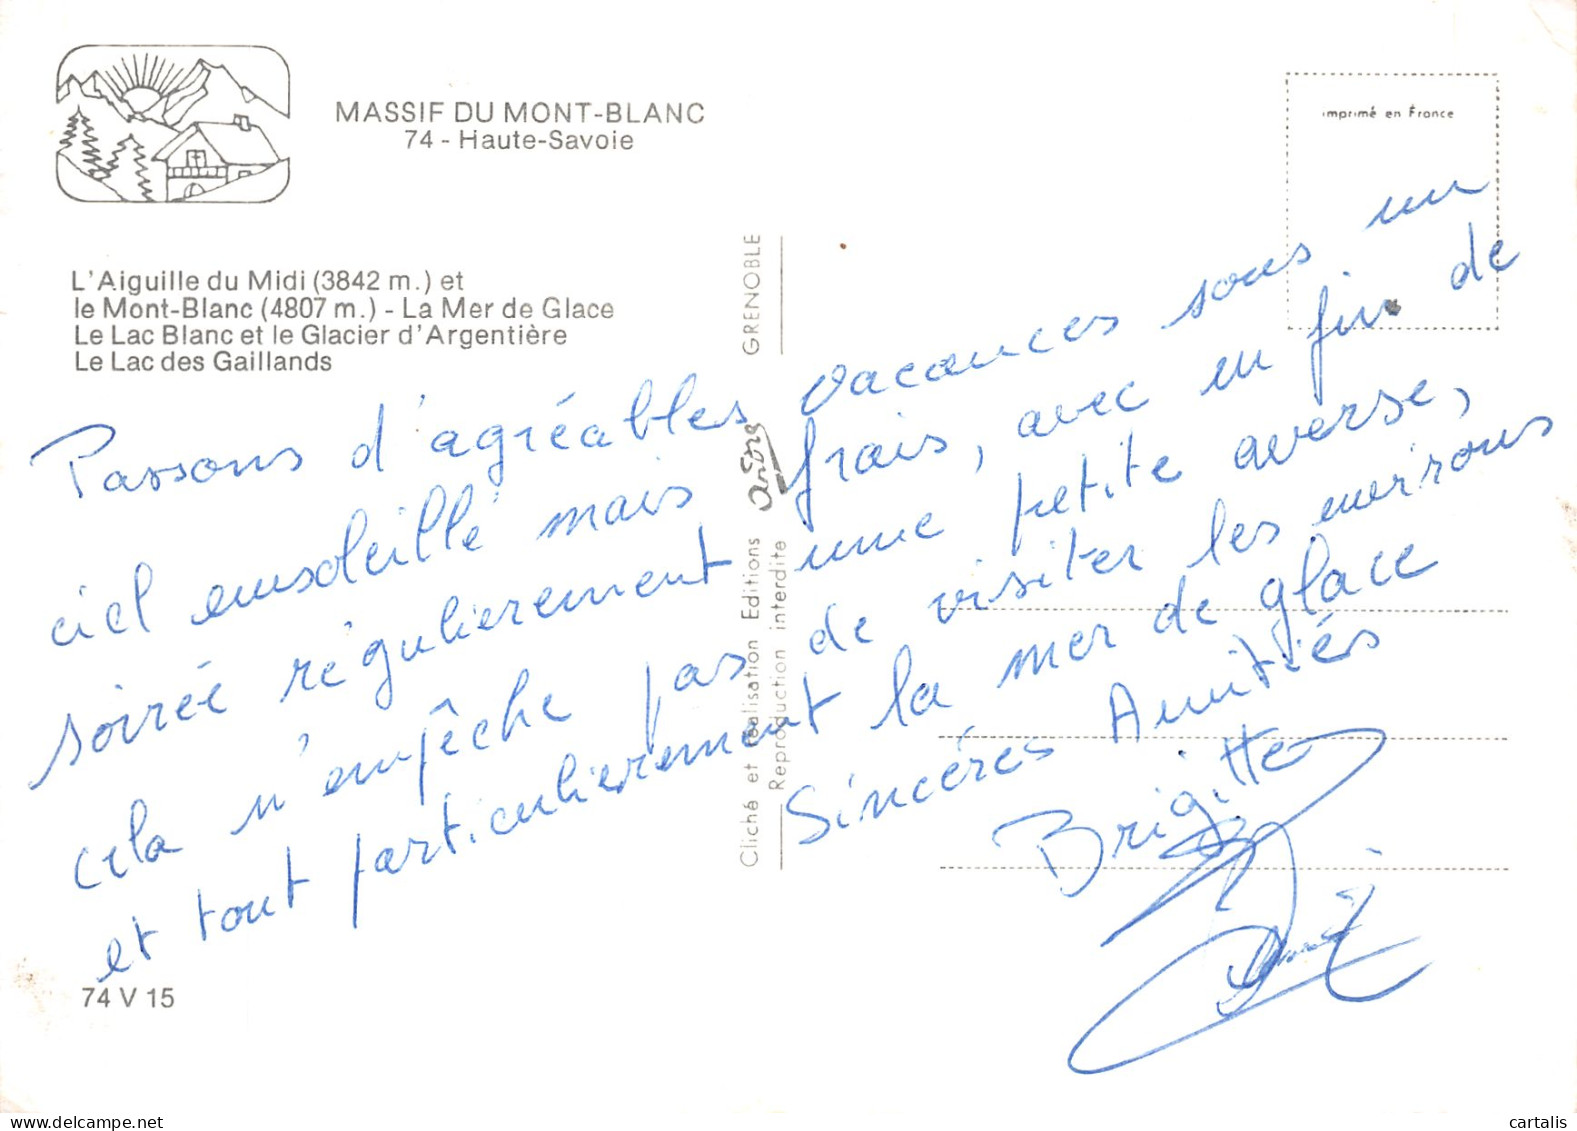 MASSIF DU MONT-BLANC
74 - Haute-Savoie
imprimé en France
L'Aiguille du Midi (3842 m.) et
le Mont-Blanc (4807 m.) - La Mer de Glace
Le Lac Blanc et le Glacier d'Argentière
Le Lac des Gaillands
Passons d'agréables vacances sous un
ciel ensoleillé mais frais, avec en fin de
soirée régulièrement une petite averse,
cela n'empêche pas de visiter les environs
et tout particulièrement la mer de glace
Sincéres Amitiés
Brigitte
Cliché et réalisation Editions GRENOBLE
Reproduction interdite
74 V 15
cartalis